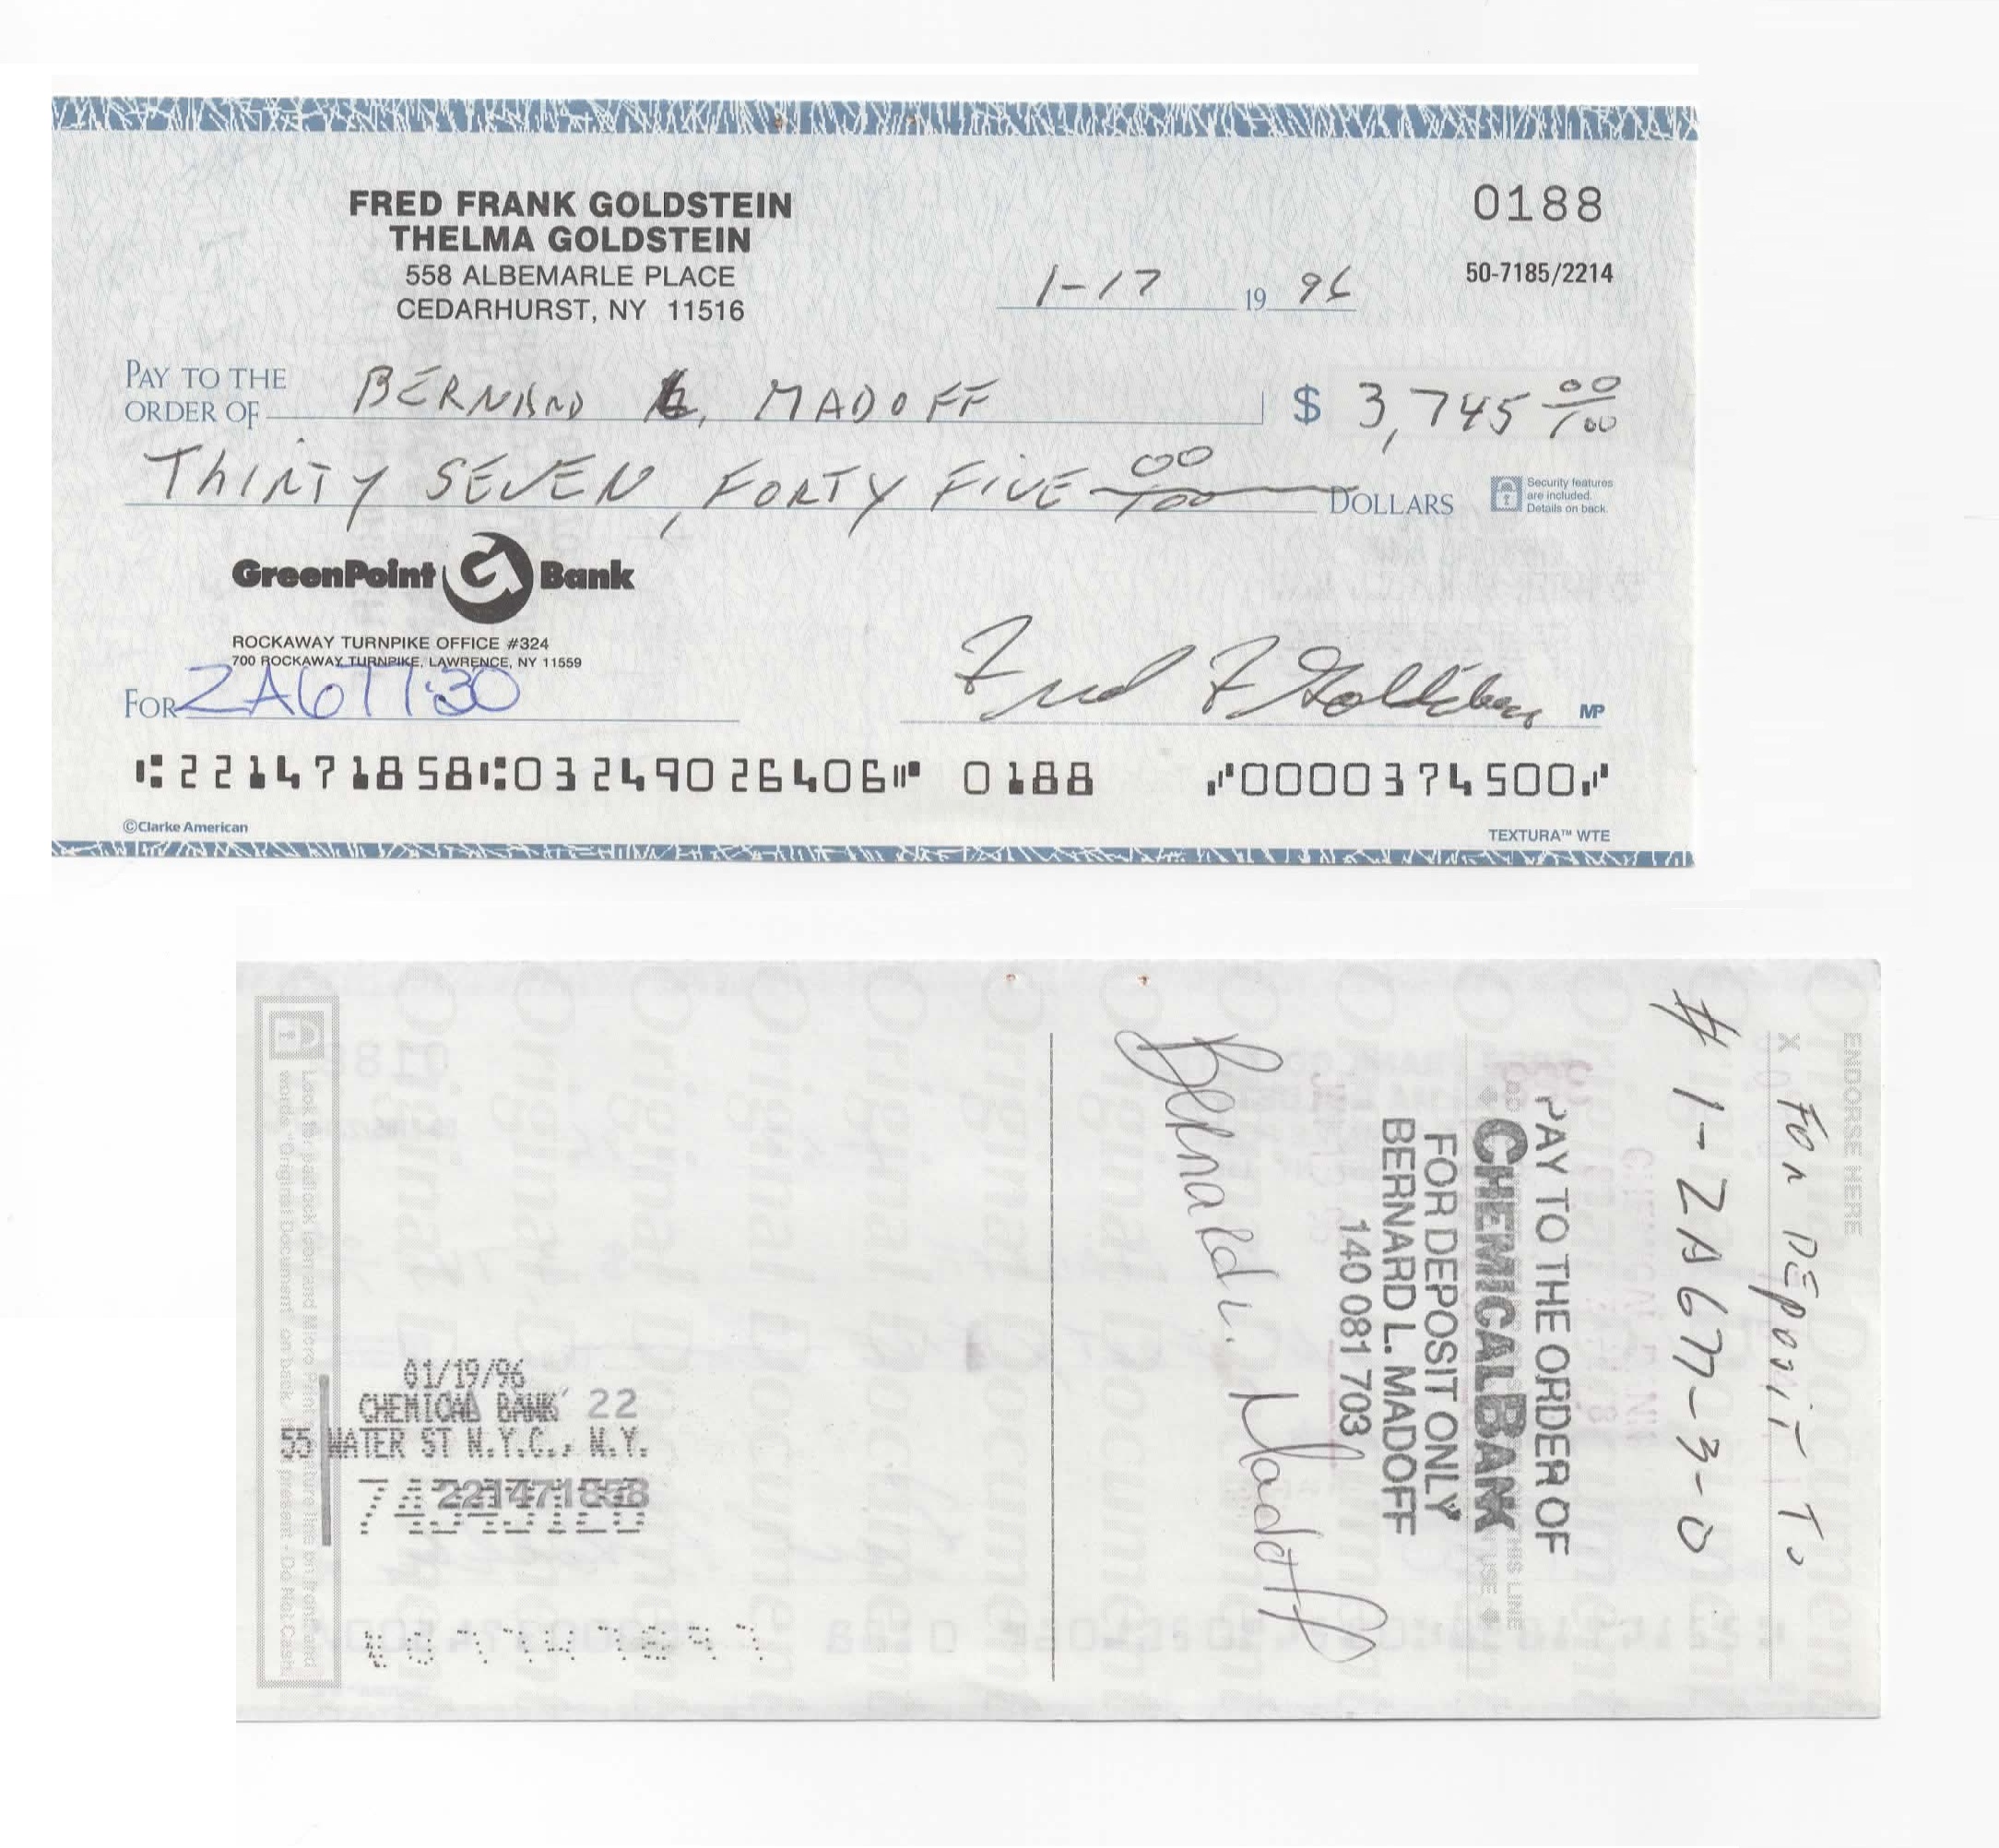 FRED FRANK GOLDSTEIN
THELMA GOLDSTEIN
558 ALBEMARLE PLACE
CEDARHURST, NY 11516
0188
50-7185/2214
1-17 19 96
PAY TO THE ORDER OF BERNARD L, MADOFF $ 3,745 00/100
THIRTY SEVEN, FORTY FIVE 00/100 DOLLARS
Security features are included. Details on back.
GreenPoint Bank
ROCKAWAY TURNPIKE OFFICE #324
700 ROCKAWAY TURNPIKE, LAWRENCE, NY 11559
FOR ZA677·30
Fred F Goldstein MP
⑆221471858⑆03249026406⑈ 0188 ⑇0000374500⑇
©Clarke American
TEXTURA™ WTE
ENDORSE HERE
X FOR DEPOSIT TO
# 1-ZA677-3-0
PAY TO THE ORDER OF
CHEMICAL BANK
FOR DEPOSIT ONLY
BERNARD L. MADOFF
140 081 703
Bernard L. Madoff
01/19/96
CHEMICAL BANK 22
55 WATER ST N.Y.C., N.Y.
221471858
Look for padlock icon and Micro Print signature line on front and
words "Original Document" on back. If not present - Do Not Cash.